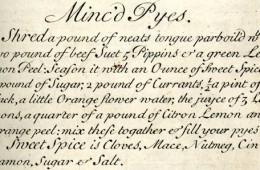 Minc'd Pyes.
Shred a pound of neats tongue parboild
wo pound of beef Suet 5 Pippins & a green Le
mon Peel: Season it with an Ounce of Sweet Spice
pound of Sugar, 2 pound of Currants, ½ a pint of
ack, a little Orange flower water, the juyce of 3 L
ons, a quarter of a pound of Citron Lemon an
range peel: mix these together & fill your pyes
Sweet Spice is Cloves, Mace, Nutmeg, Cin
amon, Sugar & Salt.